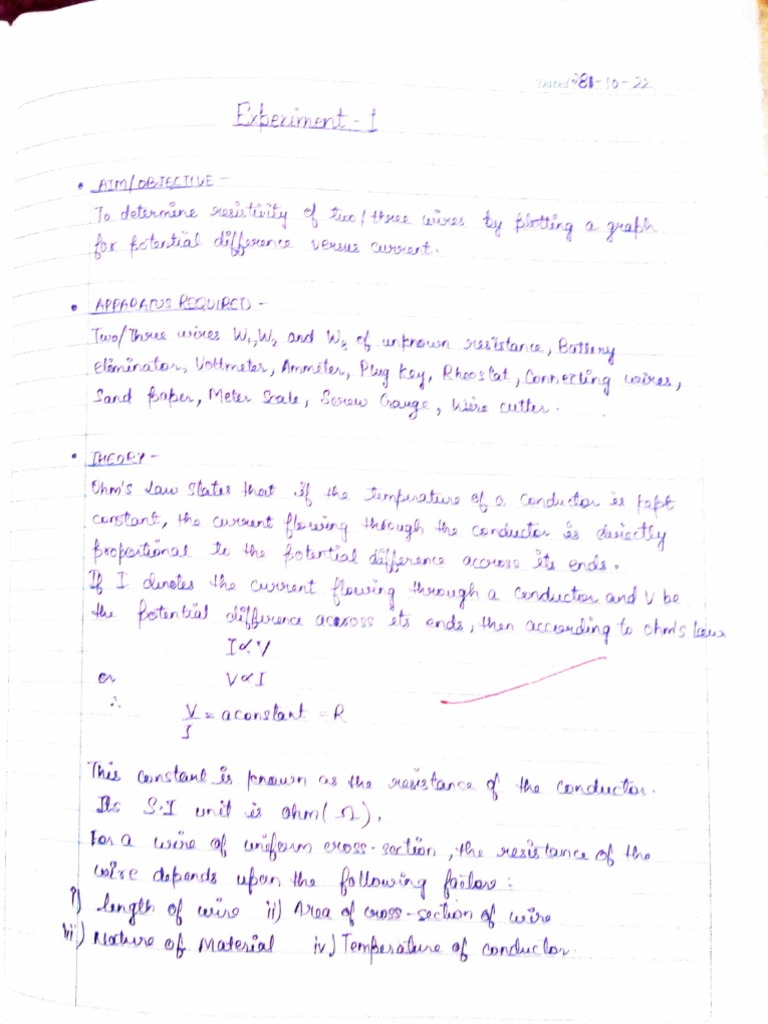 Dated 28-10-22
Experiment - 1
• AIM/OBJECTIVE -
To determine resistivity of two/three wires by plotting a graph
for potential difference versus current.
• APPARATUS REQUIRED -
Two/Three wires W1, W2 and W3 of unknown resistance, Battery
eliminator, Voltmeter, Ammeter, Plug Key, Rheostat, Connecting wires,
Sand paper, Meter Scale, Screw Gauge, Wire cutter.
• THEORY -
Ohm's Law States that if the temperature of a conductor is kept
constant, the current flowing through the conductor is directly
proportional to the potential difference accross its ends.
If I denotes the current flowing through a conductor and V be
the potential difference across its ends, then according to Ohm's Law
I ∝ V
or V ∝ I
∴ V/I = a constant = R
This constant is known as the resistance of the conductor.
Its S.I unit is ohm (Ω).
For a wire of uniform cross-section, the resistance of the
wire depends upon the following :
i) length of wire ii) Area of cross-section of wire
iii) Nature of Material iv) Temperature of conductor.